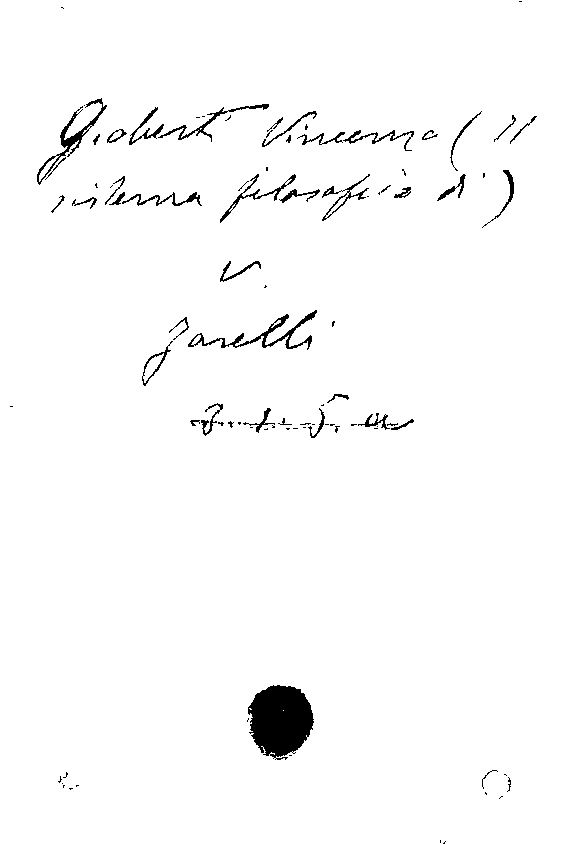 Gioberti Vincenzo ( Il
sistema filosofico di )
V.
Zarelli